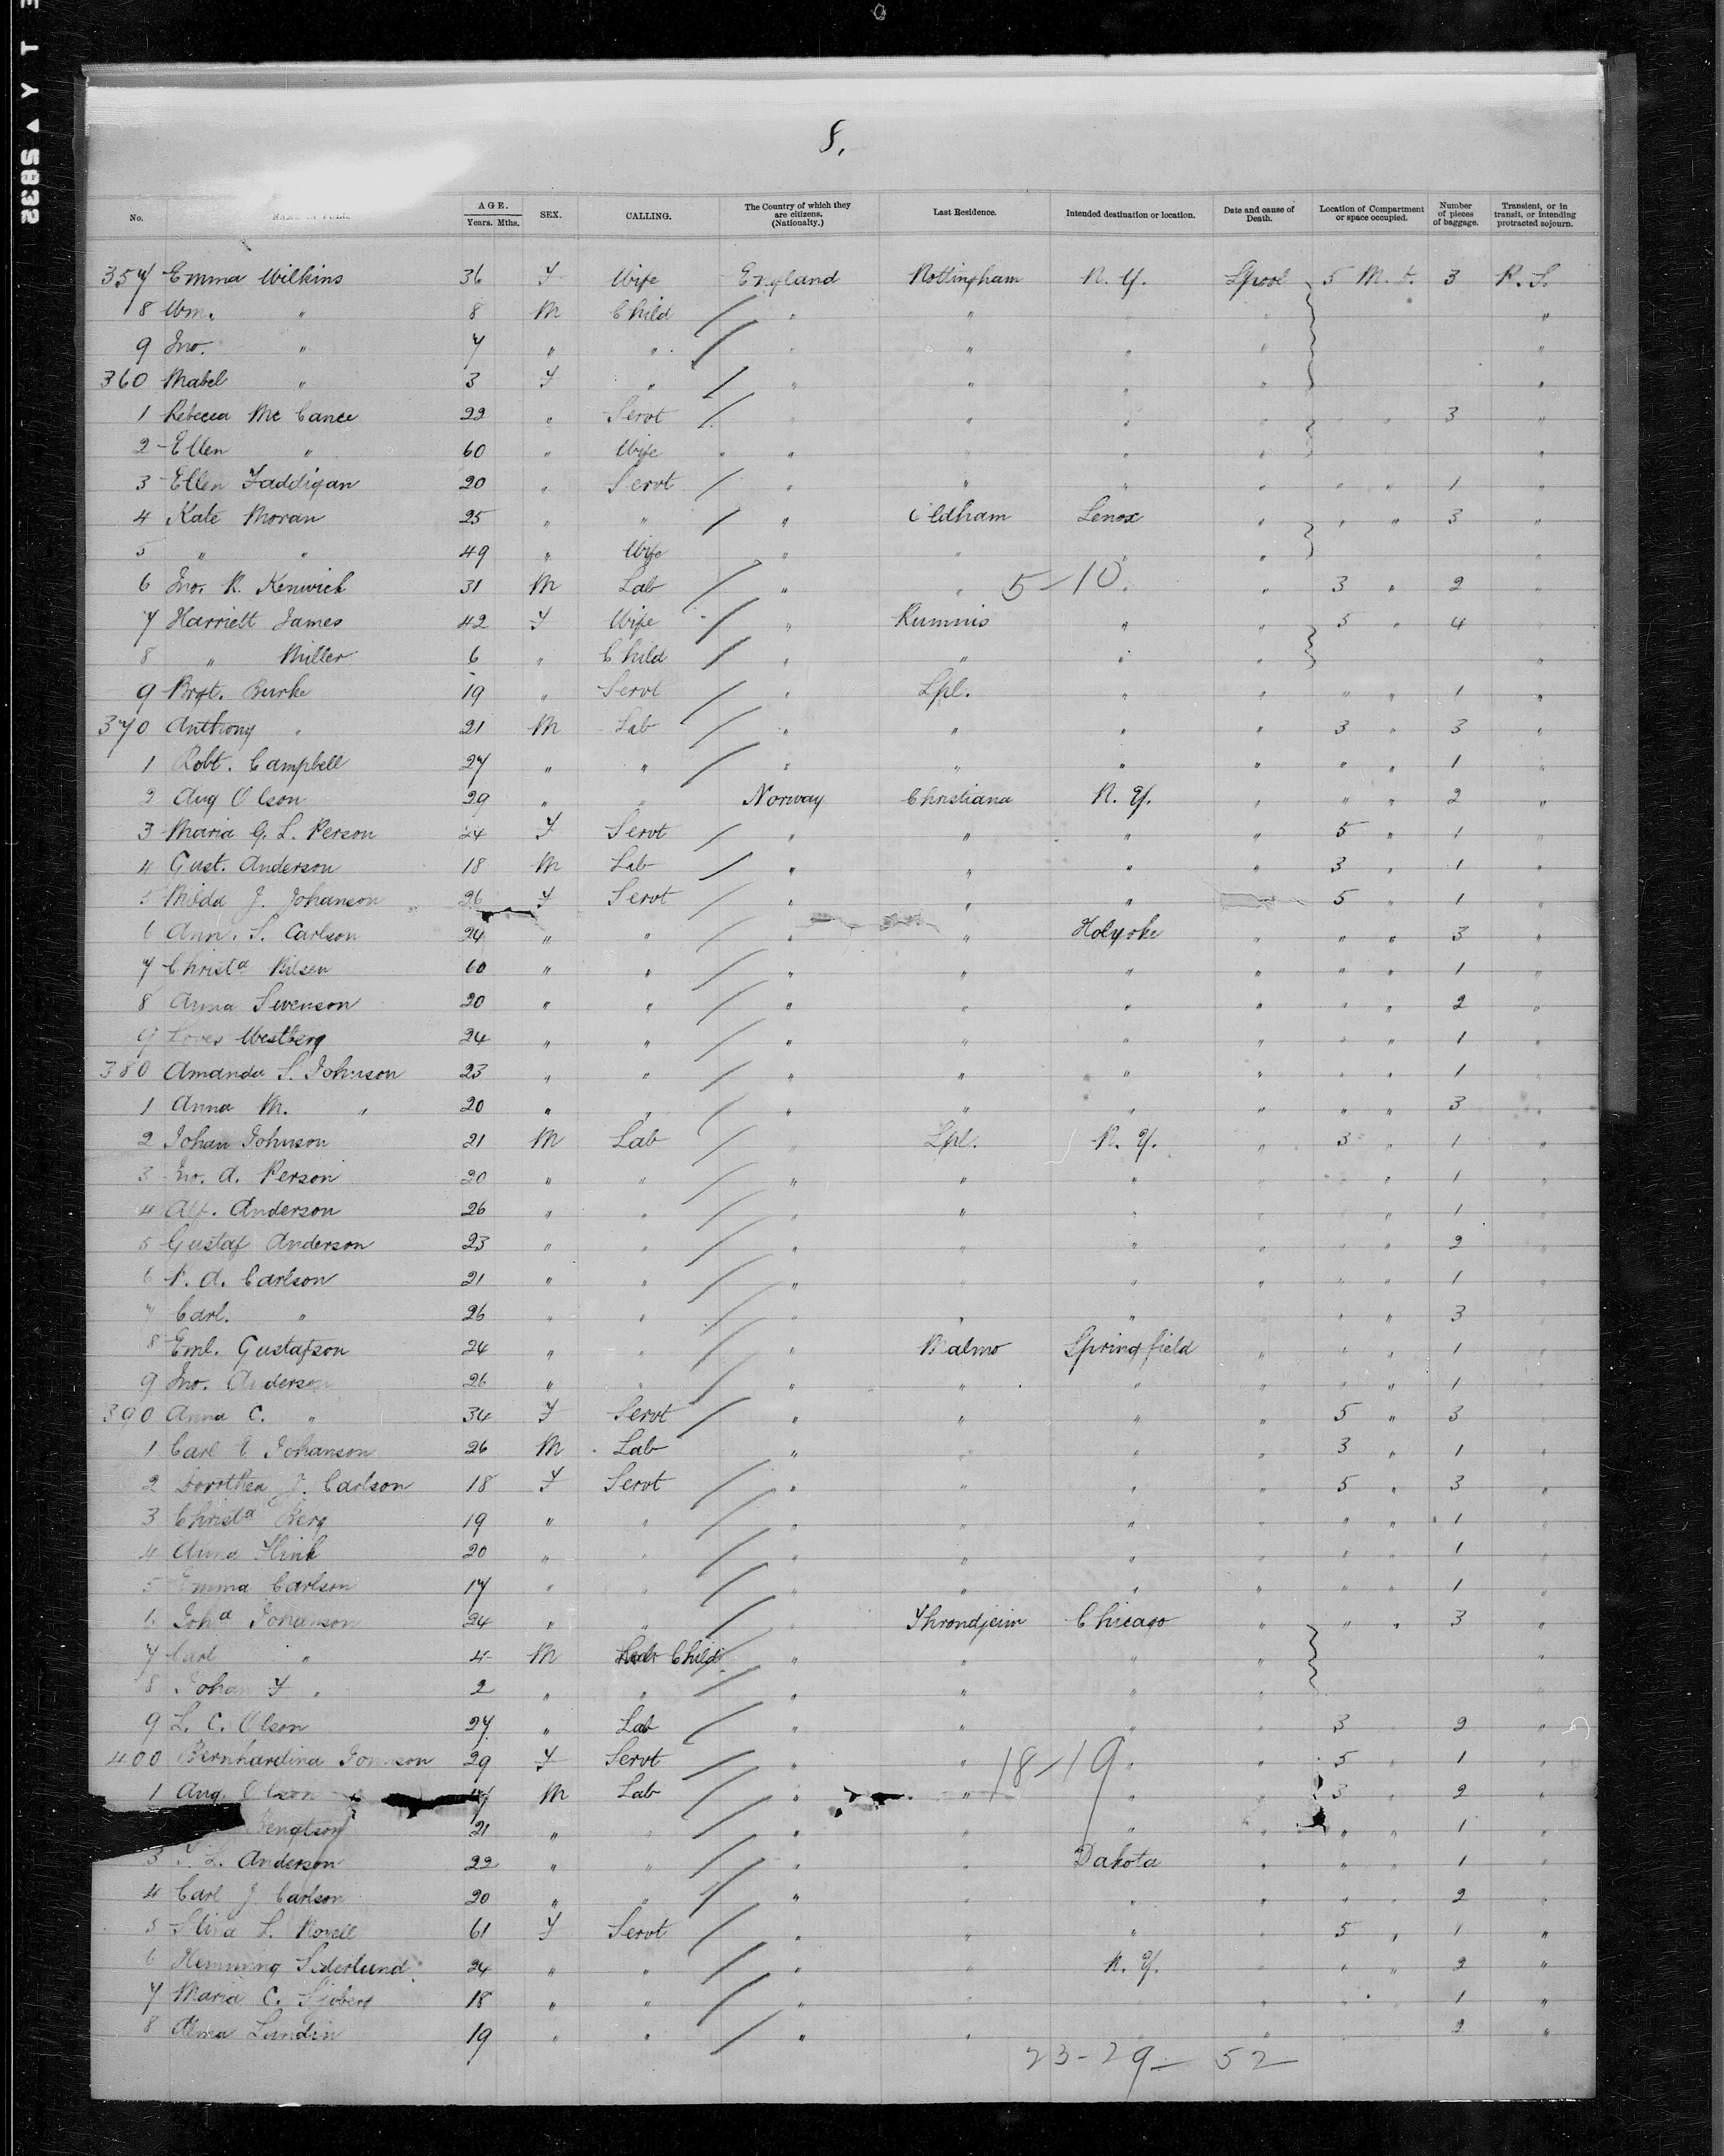 8.
No. NAME IN FULL. AGE. Years. Mths. SEX. CALLING. The Country of which they are citizens. (Nationalty.) Last Residence. Intended destination or location. Date and cause of Death. Location of Compartment or space occupied. Number of pieces of baggage. Transient, or in transit, or intending protracted sojourn.
357 Emma Wilkins 36 F Wife England Nottingham N. Y. Lpool 5 M. d. 3 P. S.
8 Wm. " 8 M Child / " " " " "
9 Jno. " 7 " " / " " " " "
360 Mabel " 3 F " / " " " " "
1 Rebecca Mc Cance 22 " Servt / " " " " " " 3 "
2 Ellen " 60 " Wife " " " " " "
3 Ellen Faddigan 20 " Servt / " " " " " " 1 "
4 Kate Moran 25 " " / " Oldham Lenox " " " 3 "
5 " " 49 " Wife " " " " "
6 Jno. R. Kenwick 31 M Lab / " " 5-10 " " 3 " 2 "
7 Harriett James 42 F Wife / " " " 5 " 4 "
8 " Miller 6 " Child / " " " " "
9 Brgt. Burke 19 " Servt / " Lpl. " " " " 1 "
370 Anthony " 21 M Lab / " " " " 3 " 3 "
1 Robt. Campbell 27 " " / " " " " " " 1 "
2 Aug Olson 29 " " Norway Christiana N. Y. " " " 2 "
3 Maria G. L. Person 24 F Servt / " " " " 5 " 1 "
4 Gust. Anderson 18 M Lab / " " " " 3 " 1 "
5 J. Johanson 26 F Servt / " " " 5 " 1 "
6 Ann. S. Carlson 24 " " / " " Holyoke " " " 3 "
7 Christa Nilsen 60 " " / " " " " " " 1 "
8 Anna Swenson 20 " " / " " " " " " 2 "
9 Westberg 24 " " / " " " " " " 1 "
380 Amanda S. Johnson 23 " " / " " " " " " 1 "
1 Anna M. " 20 " " / " " " " " " 3 "
2 Johan Johnson 21 M Lab / " Lpl. N. Y. " 3 " 1 "
3 Jno. A. Person 20 " " / " " " " " " 1 "
4 Alf. Anderson 26 " " / " " " " " " 1 "
5 Gustaf Anderson 23 " " / " " " " " " 2 "
6 A. Carlson 21 " " / " " " " " " 1 "
7 Carl. " 26 " " / " " " " " " 3 "
8 Eml. Gustafson 24 " " / " Malmo Springfield " " " 1 "
9 Jno. Anderson 26 " " / " " " " " " 1 "
390 Anna C. " 34 F Servt / " " " " 5 " 3 "
1 Carl E Johanson 26 M Lab " " " " 3 " 1 "
2 Dorothea J. Carlson 18 F Servt / " " " " 5 " 3 "
3 Christa Berg 19 " " / " " " " " " 1 "
4 Anna Flink 20 " " / " " " " " " 1 "
5 Emma Carlson 17 " " / " " " " " " 1 "
6 Joha Johanson 24 " " / " Throndjeim Chicago " " " 3 "
7 Carl " 4 M Child / " " " " "
8 Johan F " 2 " " / " " " " "
9 L. C. Olson 27 " Lab / " " " " 3 " 2 "
400 Bernhardina Johnson 29 F Servt / " " 18-19 " " 5 " 1 "
1 Aug. Olson M Lab / " " " " 3 " 2 "
Bengtson 21 " " / " " " " " " 1 "
3 L. Anderson 22 " " / " " Dakota " " " 1 "
4 Carl J Carlson 20 " " / " " " " " " 2 "
5 L. 61 F Servt / " " " " 5 " 1 "
6 Hemming Söderlund 24 " " / " " N. Y. " " " 2 "
7 Maria C. Sjoberg 18 " " / " " " " " 1 "
8 Alma Lundin 19 " " / " " " 2 "
23-29- 52